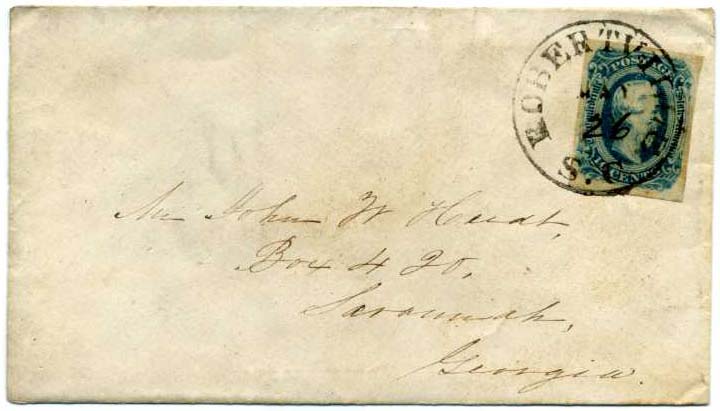 ROBERTVILLE
S.C.
26
POSTAGE
CENTS
Mr John W Heidt,
Box 420,
Savannah,
Georgia.